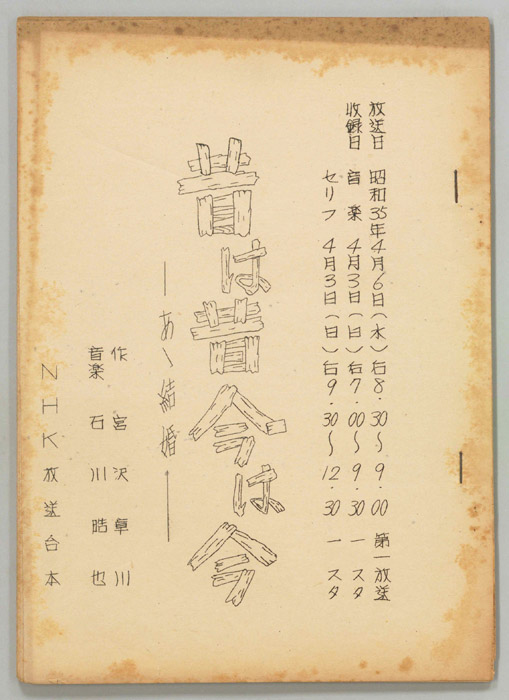 放送日 昭和35年4月6日(水)右8.30〜9.00 第一放送
収録日 音楽 4月3日(日)右7.00〜9.30 一スタ
セリフ 4月3日(日)右9.30〜12.30 一スタ
昔は昔今は今
―あゝ結婚―
作 宮沢章川
音楽 石川晧也
NHK放送台本